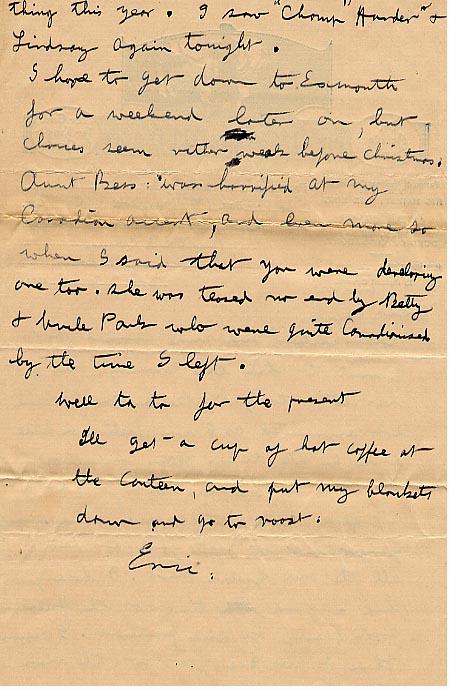 thing this year. I saw "Chomp" Harder" &
Lindsay again tonight.
I hope to get down to Exmouth
for a weekend later on, but
chances seem rather weak before Christmas.
Aunt Bess: was horrified at my
Canadian accent, and even more so
when I said that you were developing
one too. She was teased no end by Betty
& Uncle Park who were quite Canadianised
by the time I left.
Well ta ta for the present
I'll get a cup of hot coffee at
the canteen, and put my blankets
down and go to roost.
Eric.